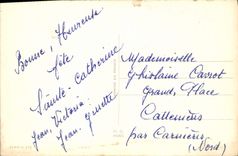 Bonne, Heureuse
fête
Sainte-Catherine
Jean, Victoria,
Jean-Ginette
Mademoiselle
Ghislaine Carrot
Grand, Place
Cattenières
par Carnières
(Nord)